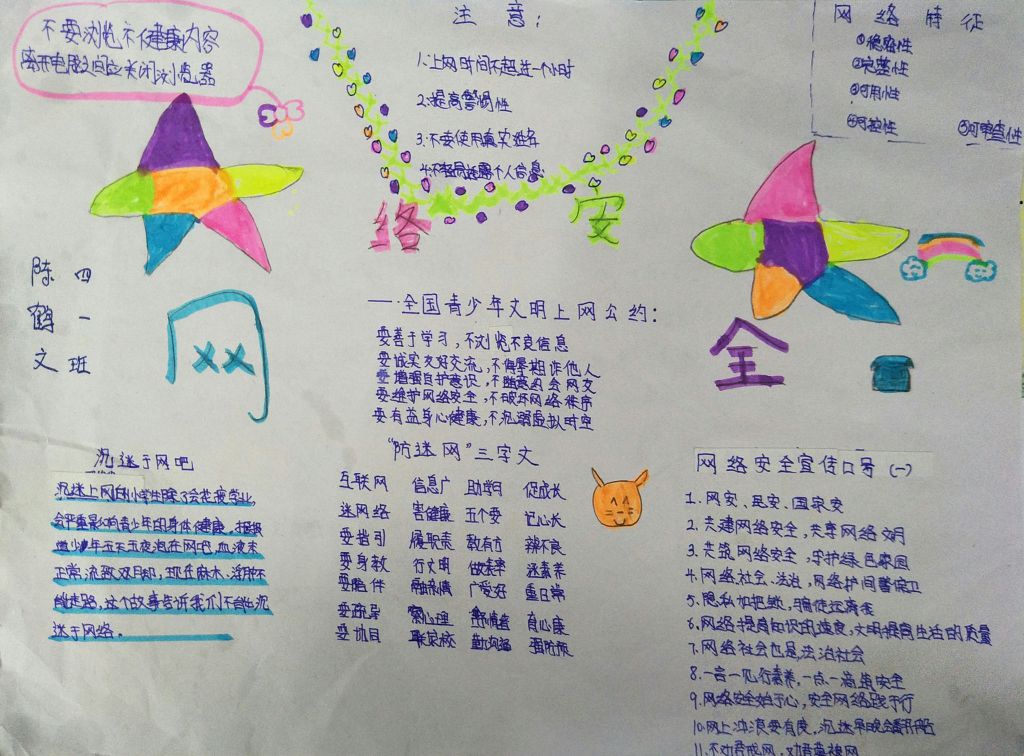 不要浏览不健康内容
离开电脑之间应关闭浏览器
注意:
1.上网时间不超过一个小时
2.提高警惕性
3.不要使用真实姓名
4.不轻易泄露个人信息
网络特征
①稳密性
②完整性
③可用性
④可控性
⑤可审查性
络
安
陈鹤文
四一班
网
全
一·全国青少年文明上网公约:
要善于学习,不浏览不良信息
要诚实友好交流,不侮辱欺诈他人
要增强自护意识,不随意约会网友
要维护网络安全,不破坏网络秩序
要有益身心健康,不沉溺虚拟时空
沉迷于网吧
沉迷上网的小学生除了会花费学业
会严重影响青少年的身体健康,据报
少年五天五夜泡在网吧,血液未
正常流致双目却,现在麻木,浮肿不
能走路,这个故事告诉我们不能沉
迷于网络。
“防迷网”三字文
互联网 信息广 助学习 促成长
迷网络 害健康 五个要 记心长
要指引 履职责 教有方 辨不良
要身教 行文明 做表率 涵素养
要陪伴 融亲情 广爱好 重日常
要疏导 察心理 舒情绪 育心康
要协同 联家校 勤沟通 强防预
网络安全宣传口号(一)
1.网安、民安、国家安
2.共建网络安全,共享网络文明
3.共筑网络安全,守护绿色家园
4.网络社会,法治,网络护间警保卫
5.隐私加把锁,骗徒远离我
6.网络提高知识的速度,文明提高生活的质量
7.网络社会也是法治社会
8.一言一见行素养,一点一滴筑安全
9.网络安全始于心,安全网络践于行
10.网上冲浪要有度,沉迷早晚会翻船